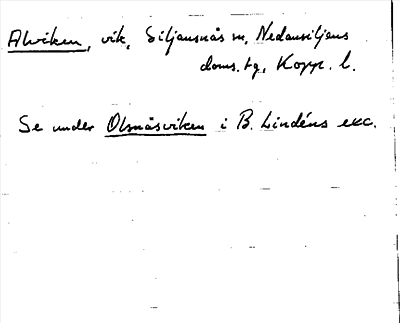 Alviken, vik, Siljansnäs sn, Nedansiljans
doms. tg, Kopp. l.
Se under Olsnäsviken i B. Lindéns exc.